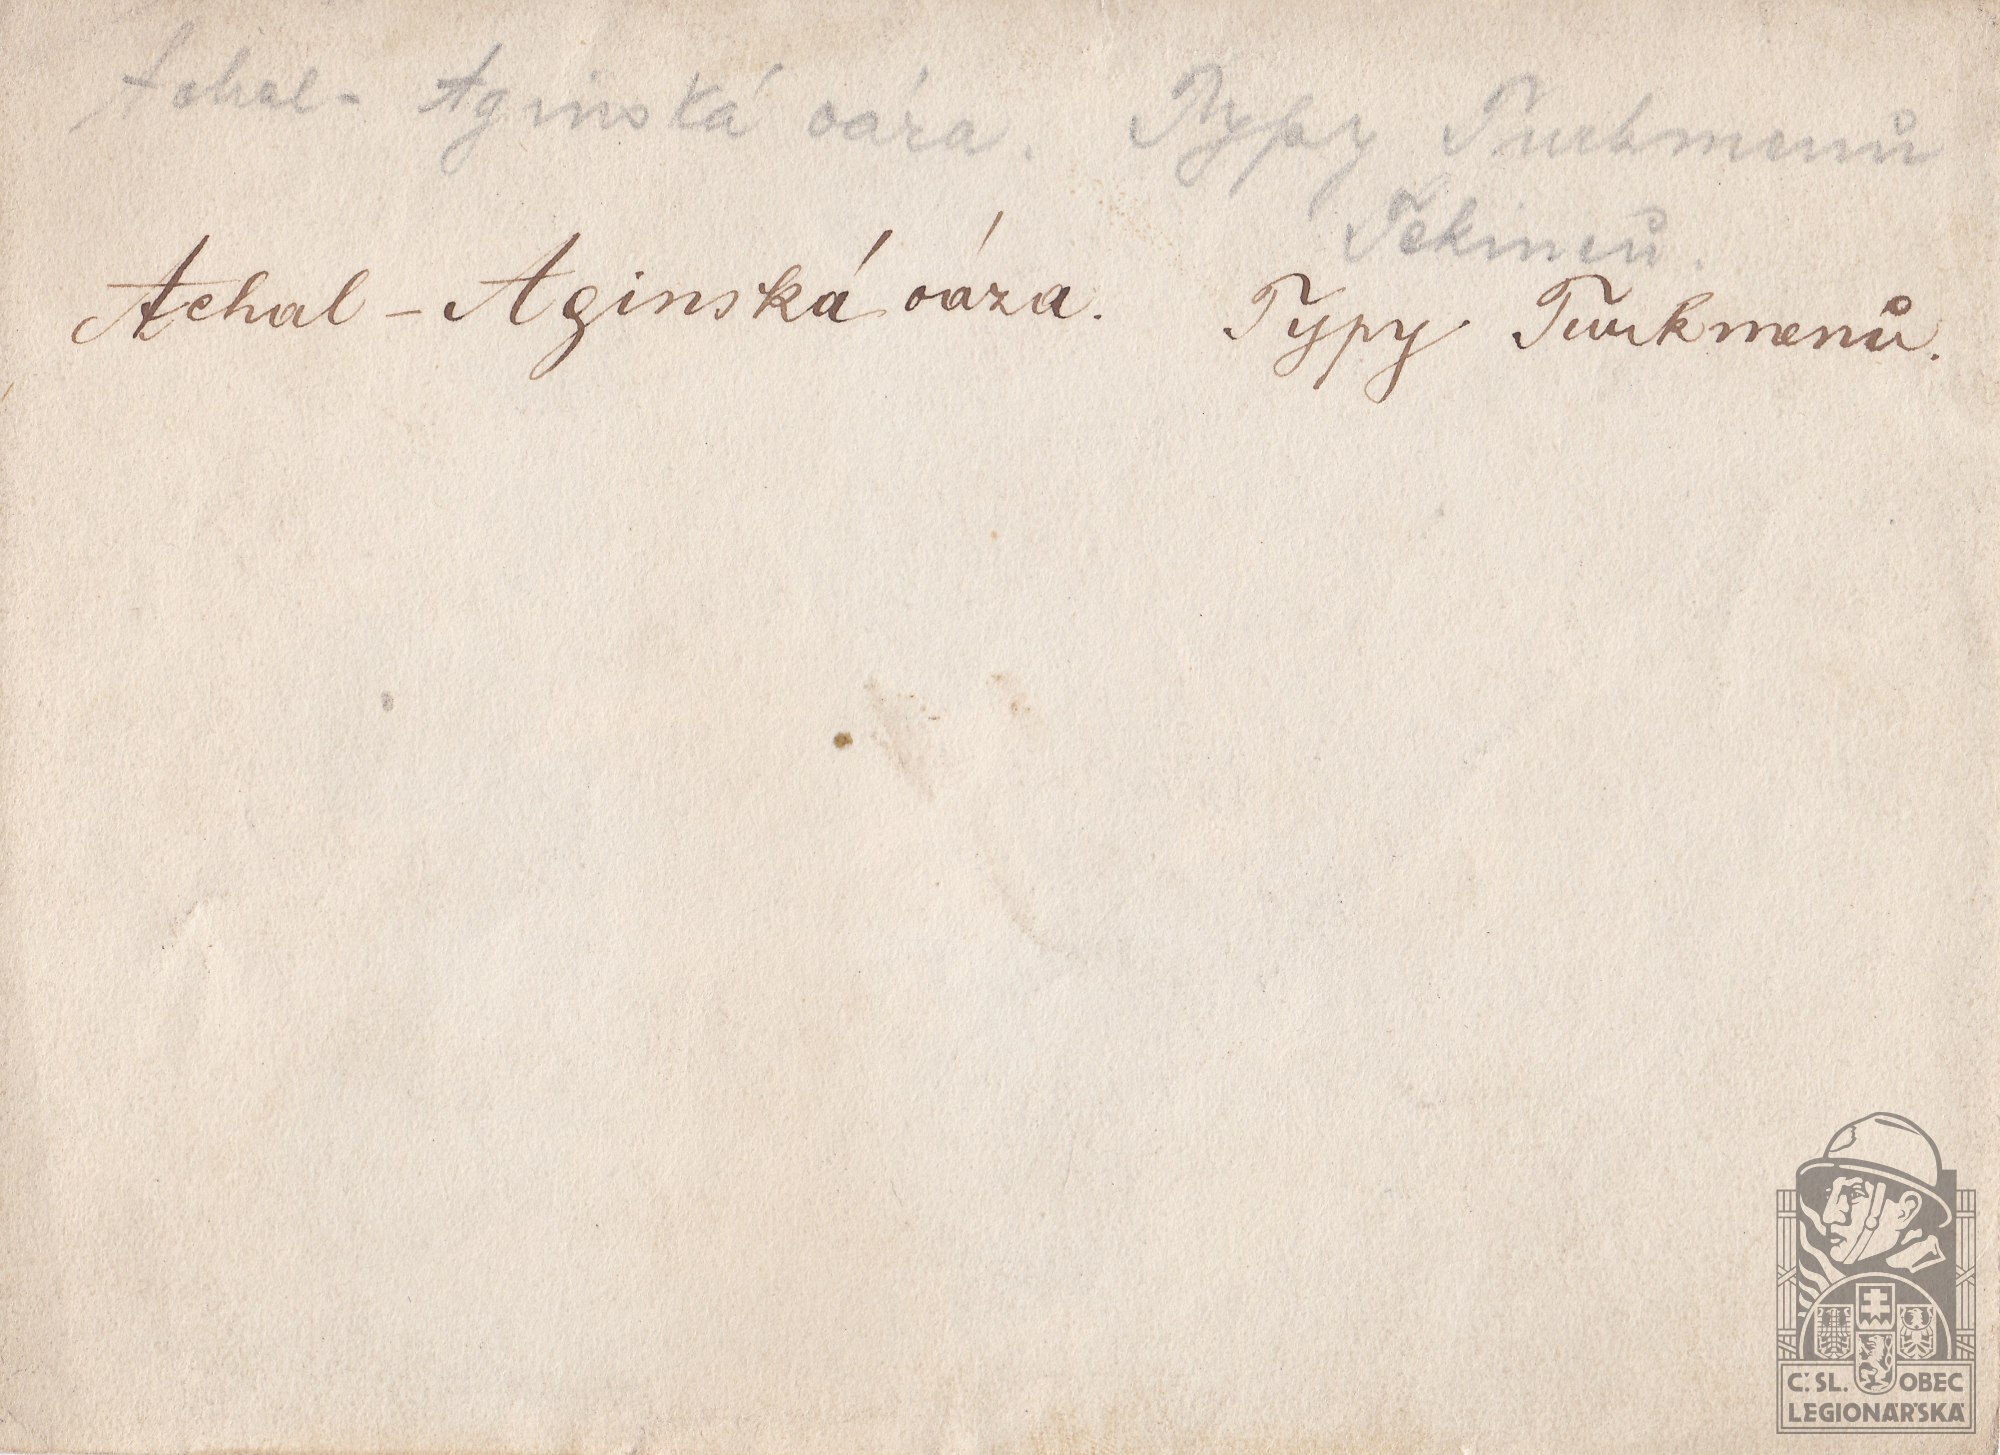 Achal - Aginská oáza. Typy Turkmenů
Tekinců.
Achal - Aginská oáza. Typy Turkmenů.
Č.SL. OBEC
LEGIONÁŘSKÁ